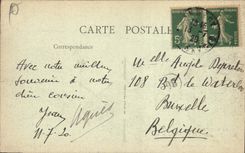 CARTE POSTALE
Correspondance
Avec notre meilleur
souvenir à notre
cher cousin
Yvon Agnès
11.7.20.
Melle Angèle
108 Bd de Waterloo
Bruxelle
Belgique